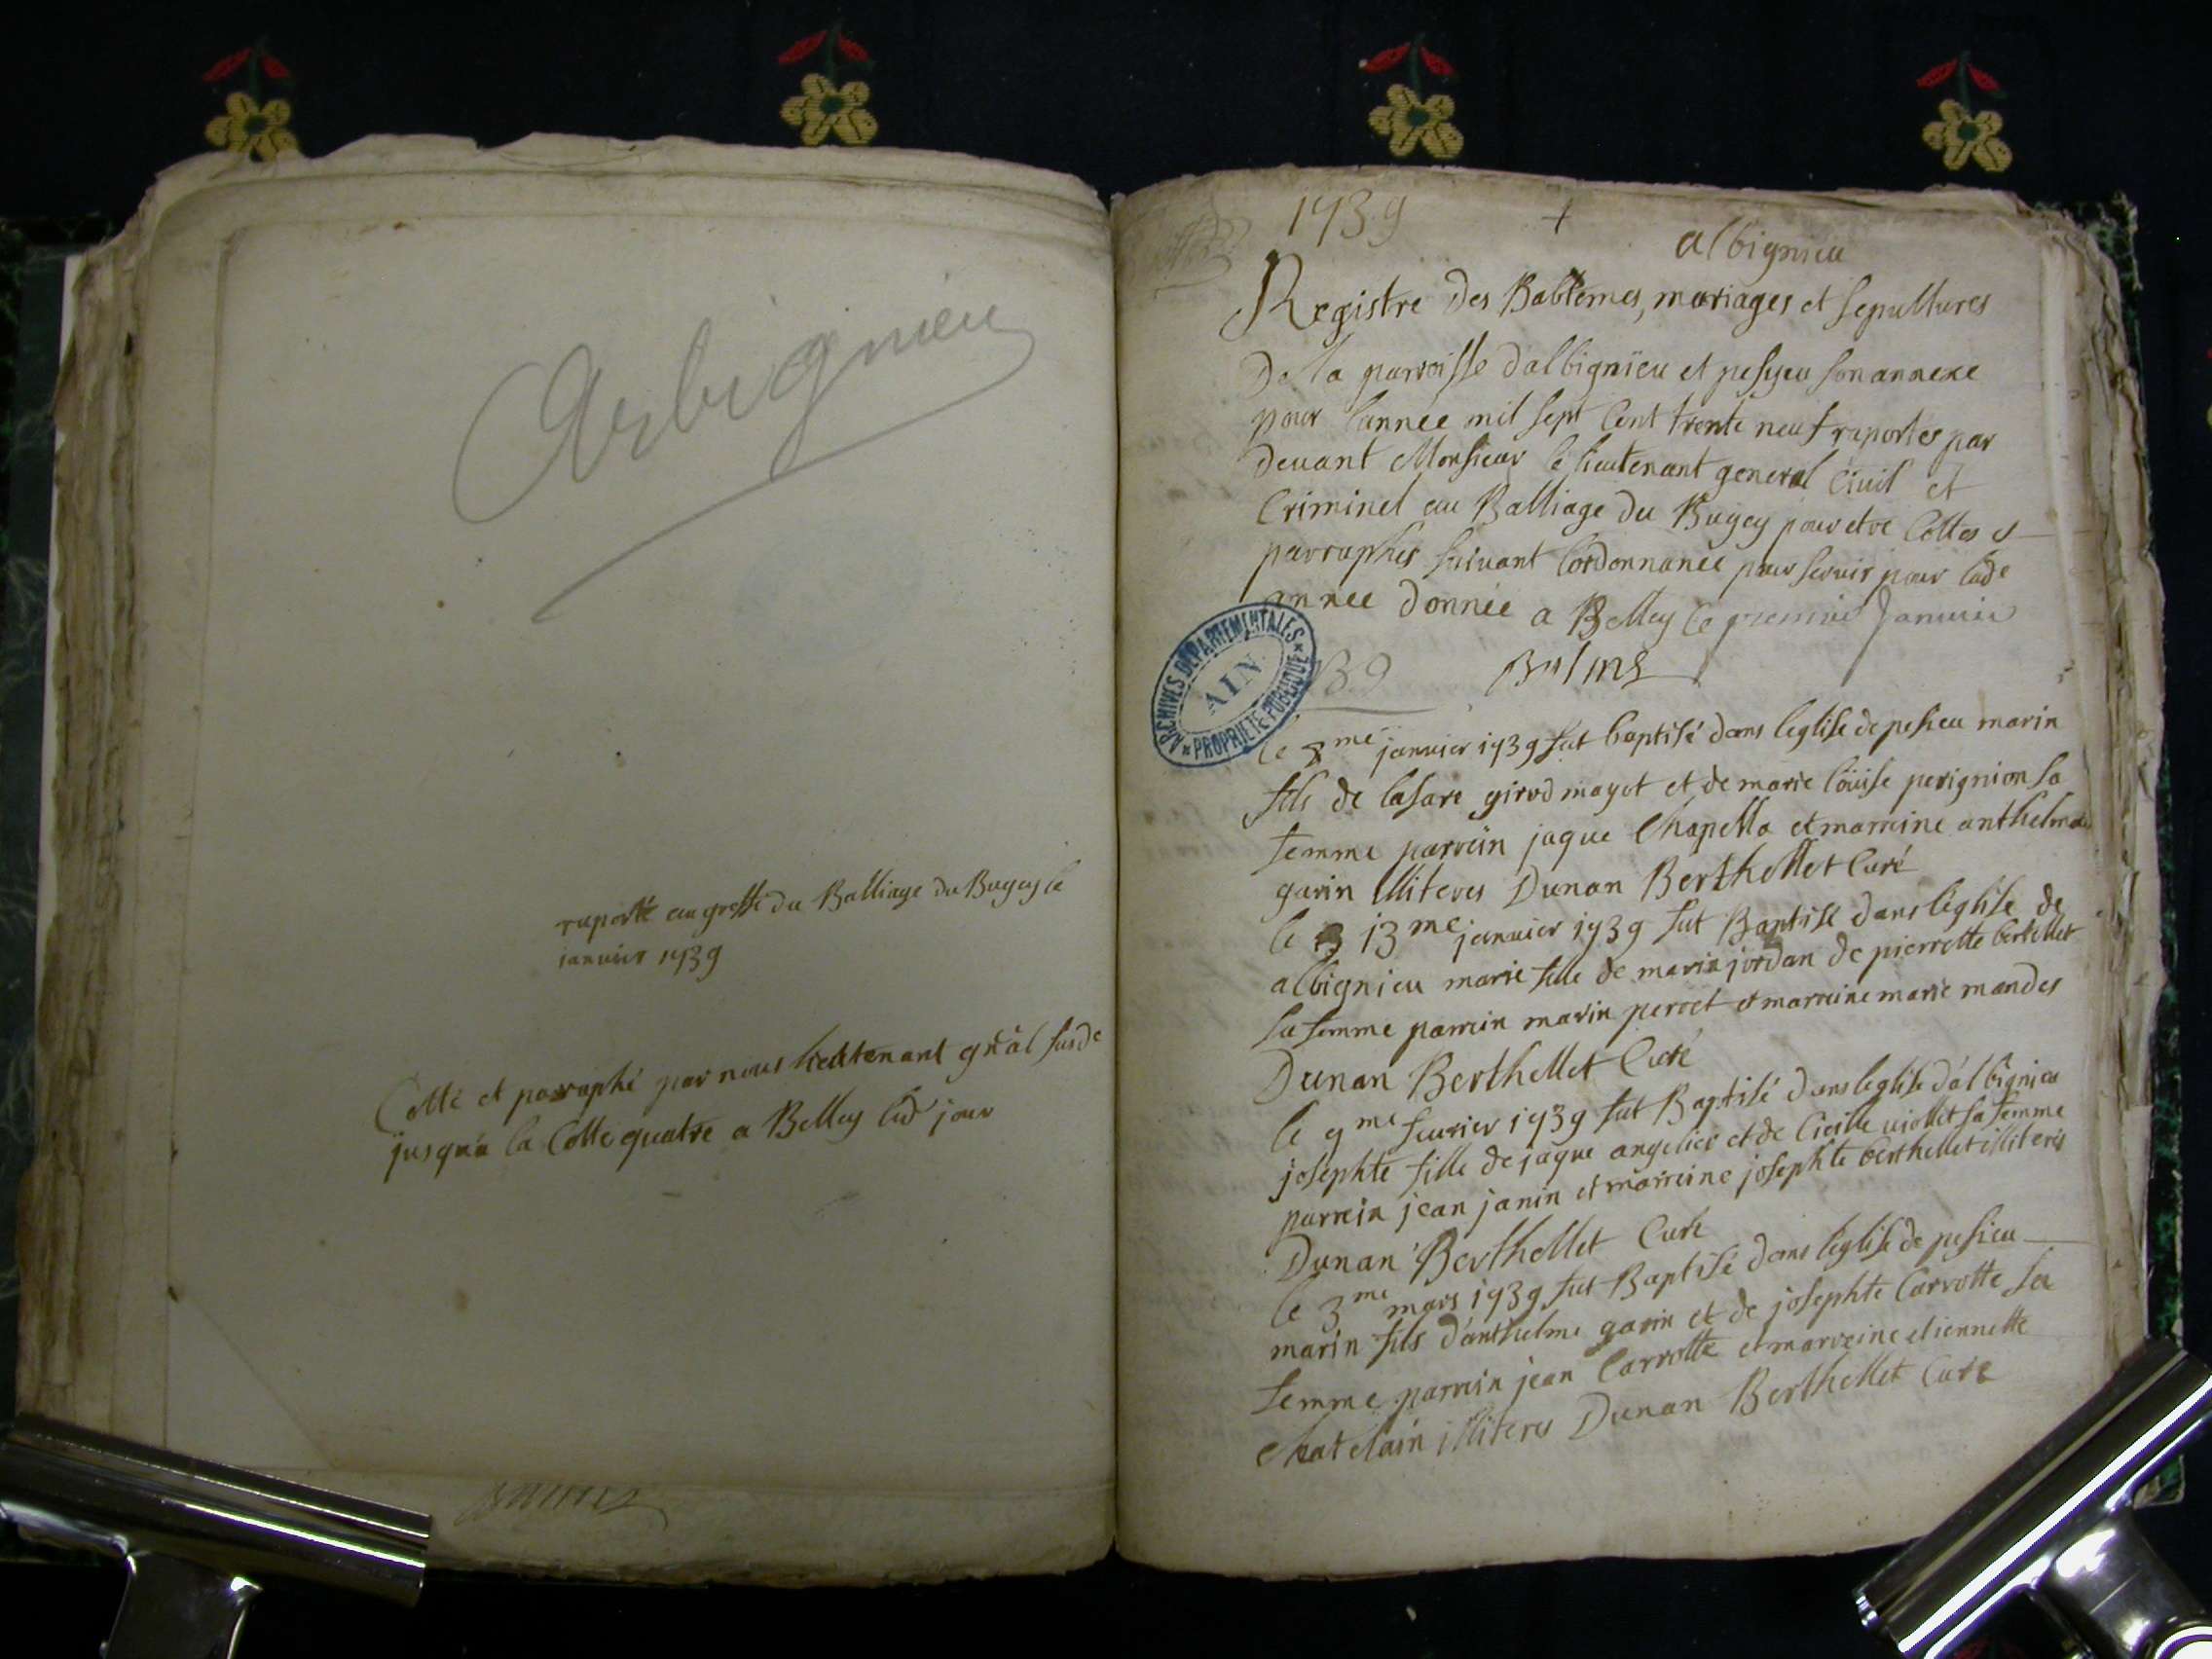 Arbignieu
raporté au greffe du Balliage du Bugey le
januier 1739
Cotté et parraphé par nous lieutenant gnãl susde
jusqu'a la Cotte quatre a Belley led jour
1739
+
albignieu
Registre des Babtemes, mariages et sepultures
De la parroisse dalbignieu et pesyeu son annexe
pour lannée mil sept Cent trente neuf raportés par
deuant Monsieur le lieutenant general Ciuil et
Criminel au Balliage du Bugey pour etre Cottes et
parraphes suiuant lordonnance pour seruir pour lade
annee donnée a Belley le premier Januier
39
ARCHIVES DEPARTEMENTALES
AIN
PROPRIETE PUBLIQUE
le me januier 1739 fut baptisé dans leglise de pesieu marin
fils de lasare girod mayot et de marie loüise perignion sa
femme parrein jaque Chapella et marreine anthelme
garin illiteres Dunan Berthellet Curé
le 13me januier 1739 fut Baptisé dans léglise de
albignieu marie fille de marin jordan de pierrette bertellet
sa femme parrein marin perret et marreine marie mandes
Dunan Berthellet Curé
le 9me feurier 1739 fut Baptisé dans leglise d'albignieu
josephte fille de jaque angelier et de Cicille uiollet sa femme
parrein jean janin et marreine josephte berthellet illiterés
Dunan Berthellet Curé
le 3me mars 1739 fut Baptisé dans léglise de pesieu
marin fils d'anthelme garin et de josephte Carrotte sa
femme parrein jean Carrotte et marreine etiennette
Chatelain illiteres Dunan Berthellet Curé